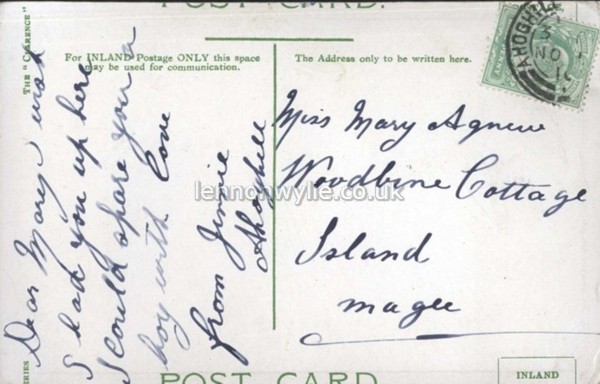 POST CARD.
THE "CLARENCE"
For INLAND Postage ONLY this space
may be used for communication.
The Address only to be written here.
AHOGHILL
NO
Dear Mary I wish
I had you up here
I could spare you a
boy with love
from Jinnie
Ahoghill
Miss Mary Agnew
Woodbine Cottage
Island
magee
lennonwylie.co.uk
POST CARD
INLAND